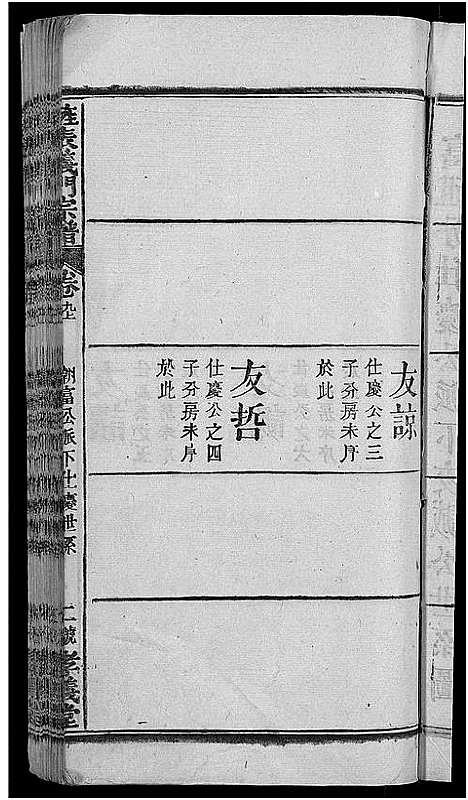 友諒
仕慶公之三
子分房未序
於此
友哲
仕慶公之四
子分房未序
於此
旌表義門宗譜
卷九
朝富公派下仕慶世系
二號
孝義堂